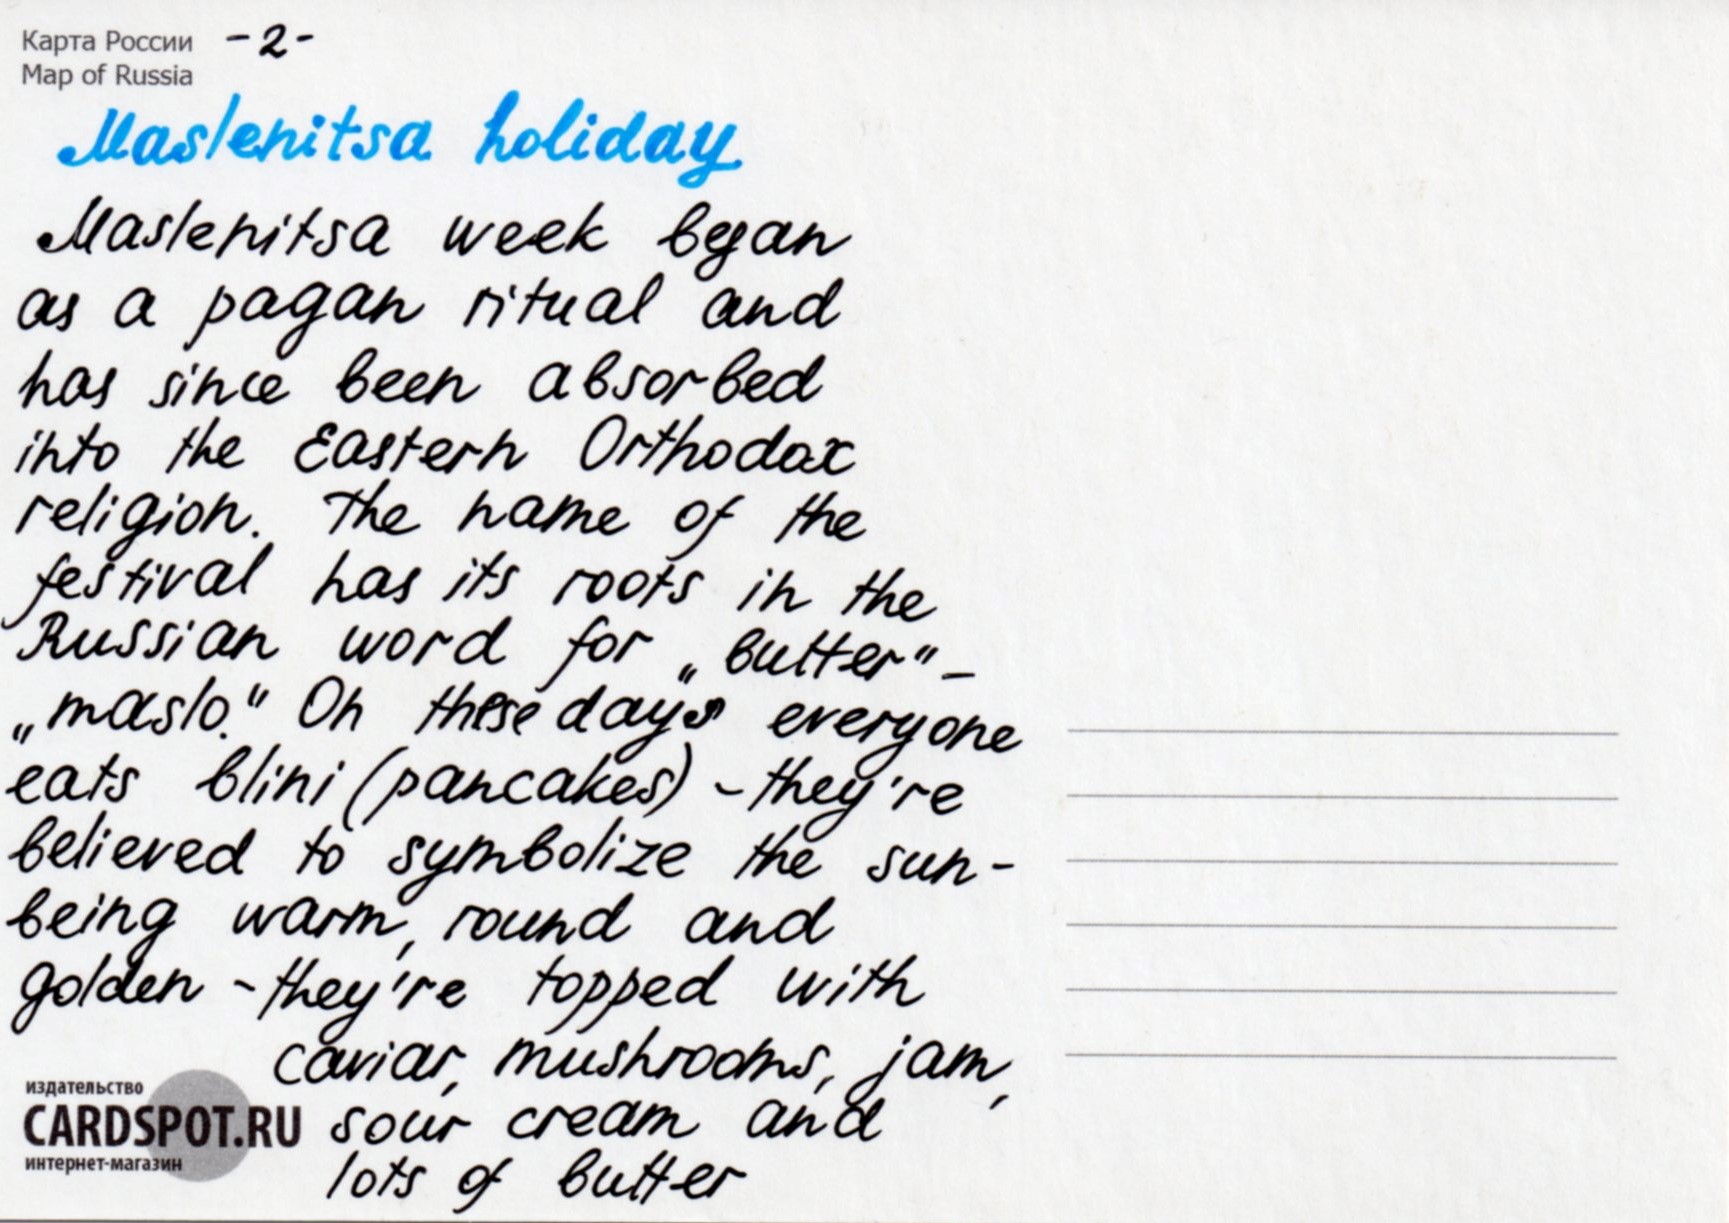 Карта России -2-
Map of Russia
Maslenitsa holiday
Maslenitsa week began
as a pagan ritual and
has since been absorbed
into the Eastern Orthodox
religion. The name of the
festival has its roots in the
Russian word for „butter" –
„maslo." On these days everyone
eats blini (pancakes) – they're
believed to symbolize the sun –
being warm, round and
golden – they're topped with
caviar, mushrooms, jam,
sour cream and
lots of butter
издательство
CARDSPOT.RU
интернет-магазин